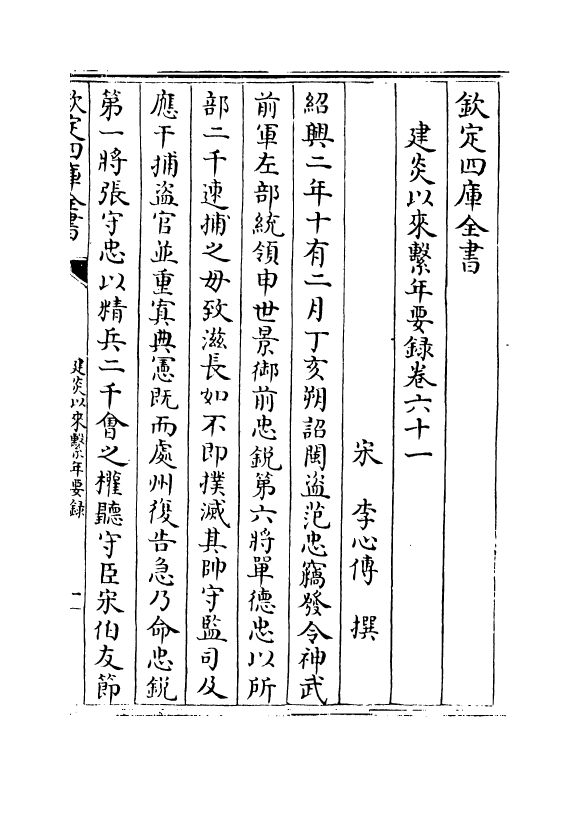 欽定四庫全書
建炎以來繫年要錄卷六十一
宋 李心傳 撰
紹興二年十有二月丁亥朔詔閩盗范忠竊發令神武
前軍左部統領申世景御前忠鋭第六將單德忠以所
部二千速捕之毋致滋長如不即撲滅其帥守監司及
應干捕盗官並重寘典憲既而處州復告急乃命忠鋭
第一將張守忠以精兵二千會之權聽守臣宋伯友節
欽定四庫全書
建炎以來繫年要録